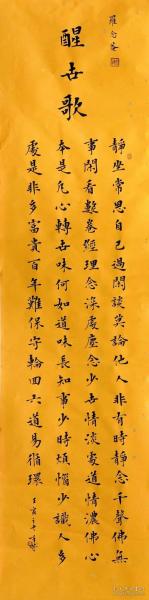 羅念菴
醒世歌
靜坐常思自己過閒談莫論他人非有時靜念千聲佛無
事閒看數卷經理念濃處塵念少世情淡處道情濃佛心
本是凡心轉世味何如道味長知事少時煩惱少識人多
處是非多富貴百年難保守輪回六道易循環 壬寅之